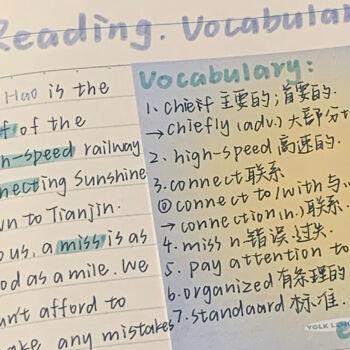 Reading. Vocabular
Hao is the
f of the
n-speed railway
necting Sunshine
wn to Tianjin.
o us, a miss is as
od as a mile. We
n't afford to
ke any mistakes
Vocabulary:
1. chieff 主要的;首要的.
→ chiefly (adv.) 大部分
2. high-speed 高速的.
3. connect 联系
① connect to/with 与…
→ connection (n.) 联系.
4. miss n. 错误.过失.
5. pay attention to
6. organized 有条理的
7. standaard 标准.
YOLK